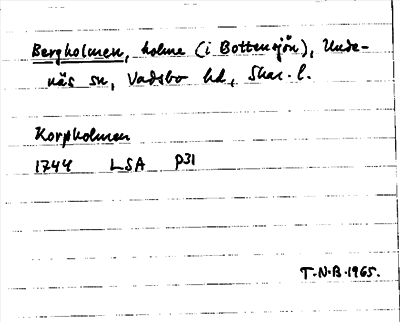 Bergholmen, holme (i Bottensjön), Unde-
näs sn, Vadsbo hd, Skar. l.
Korpholmen
1744 LSA P31
T.N.B. 1965.